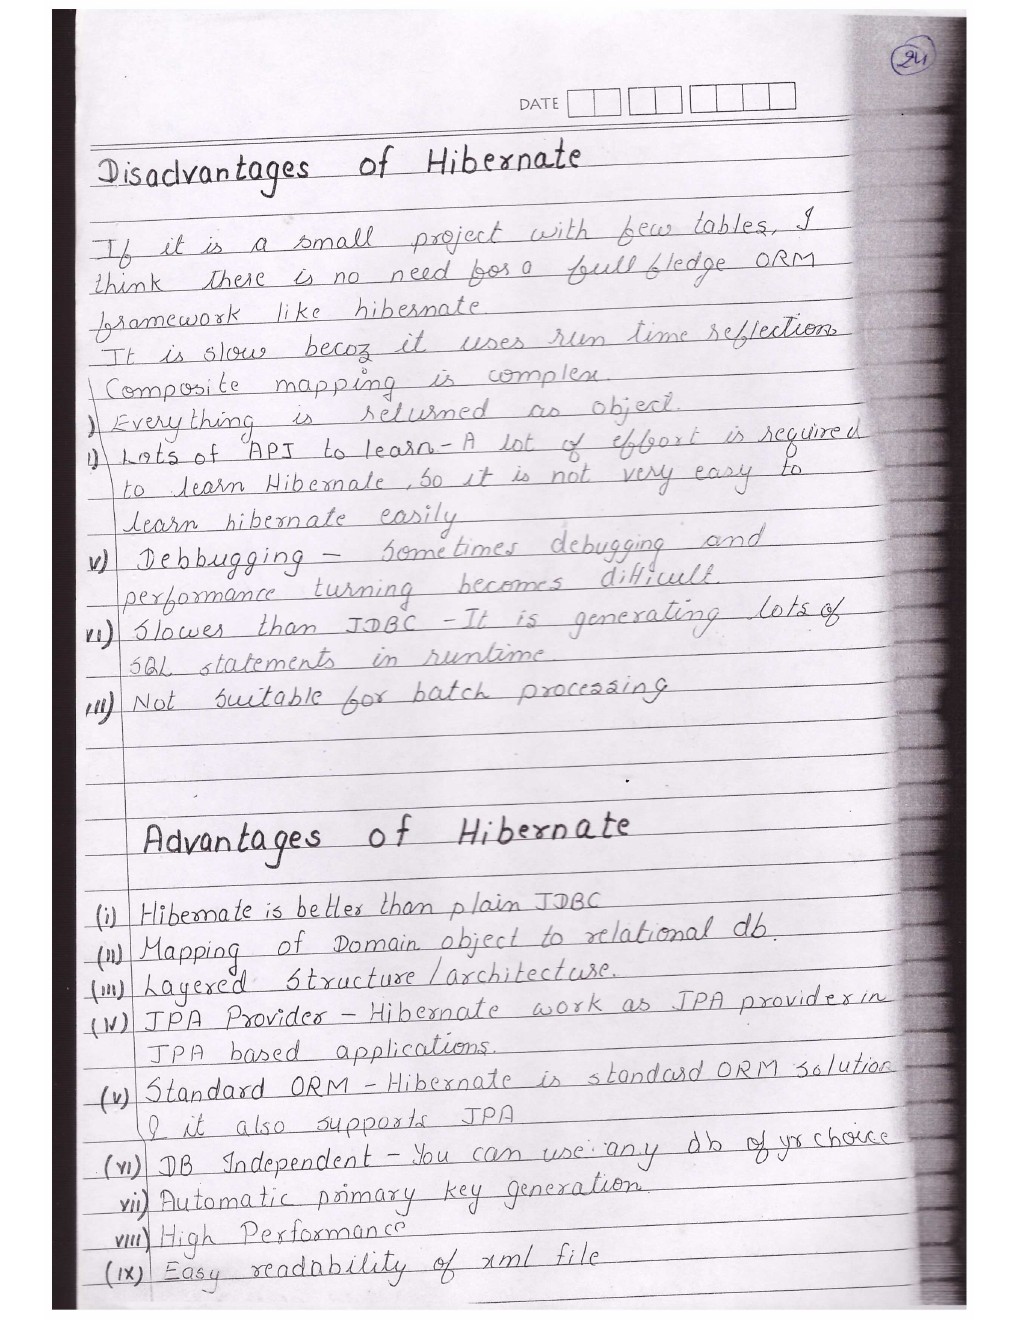 24
DATE
Disadvantages of Hibernate
If it is a small project with few tables, I
think there is no need for a full fledge ORM
framework like hibernate.
It is slow becoz it uses run time reflection
Composite mapping is complex.
) Everything is returned as object.
i) Lots of API to learn - A lot of effort is required
to learn Hibernate, so it is not very easy to
learn hibernate easily
v) Debbugging - Sometimes debugging and
performance turning becomes difficult.
vi) Slower than JDBC - It is generating lots of
SQL statements in runtime
iii) Not Suitable for batch processing
Advantages of Hibernate
(i) Hibernate is better than plain JDBC
(ii) Mapping of Domain object to relational db.
(iii) Layered Structure / architecture.
(iv) JPA Provider - Hibernate work as JPA provider in
JPA based applications.
(v) Standard ORM - Hibernate is standard ORM solution
& it also supports JPA
(vi) DB Independent - You can use any db of yr choice
vii) Automatic primary key generation
viii) High Performance
(ix) Easy readability of xml file